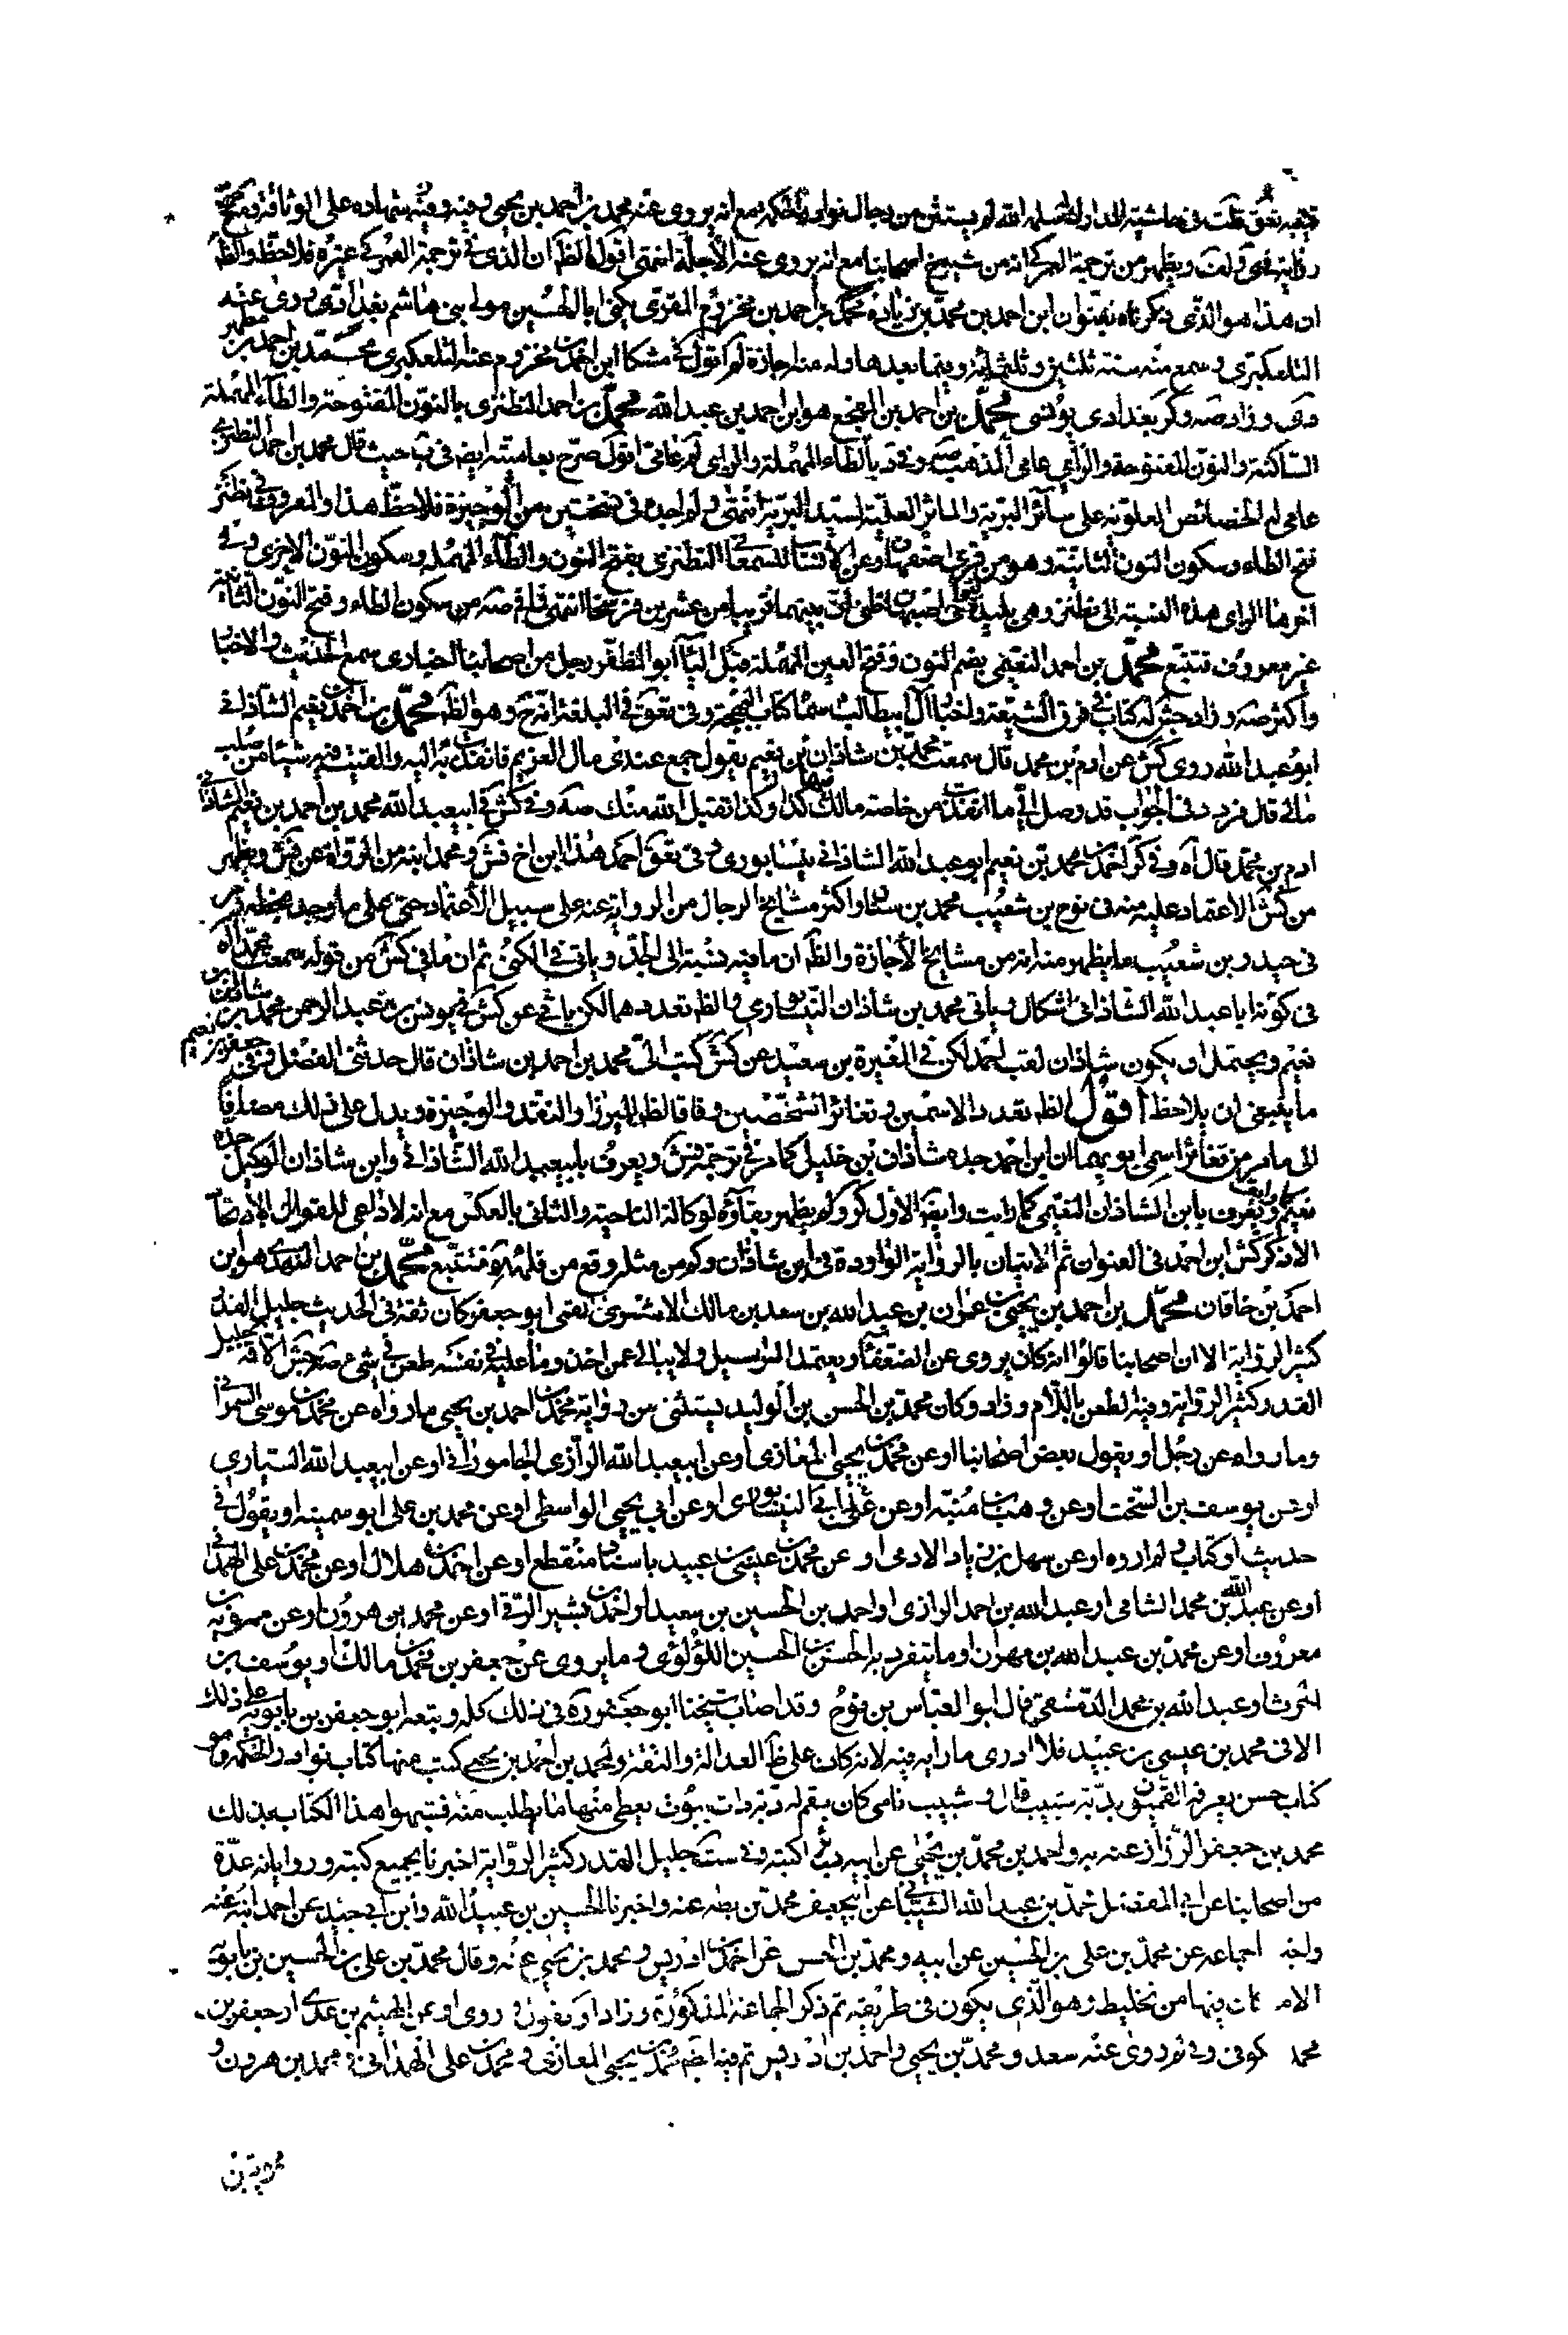 رواية في ولت ويظهر من ترجمة العمركي انه من شيوخ اصحابنا مع انه يروي عنه الأجلة انتهى اقول الظ ان الذي في ترجمة العمركي غيره فلاحظ والظ
ان هذا هو الذي ذكرناه بعنوان ابن احمد بن محمد بن زياده محمد بن احمد بن مخزوم المقرى يكنى ابا الحسين مولى بني هاشم بغدادى روى عنه
التلعكبري وسمع منه سنة ثلثين وثلثمائة وفيما بعدها وله منه اجازة لم اقول في مشكا ابن احمد بن مخزوم عنه التلعكبرى محمد بن احمد بن مطهر
دى وزاد صه وكر بغدادى يونسى محمد بن احمد بن المفجع هو ابن احمد بن عبد الله محمد بن احمد النطنزى بالنون المفتوحة والطاء المهملة
الساكنة والنون المفتوحة والزاي عامى المذهب صه وفي د بالطاء المهملة والزاى لم عامى اقول صرح بعاميته ايضا في ب حيث قال محمد بن احمد النطنزي
عامى له الخصائص العلوية على سائر البرية والمآثر العلية لسيد البرية انتهى ولم اجده في نسختين من الوجيزة فلاحظ هذا والمعروف في نطنز
فتح الطاء وسكون النون الثانية وهو من قرى اصفهان وعن الأنساب للسمعاني النطنزى بفتح النون والطاء المهملة وسكون النون الاخرى وفي
اخرها الزاى هذه النسبة الى نطنز وهي بليدة بنواحى اصبهان اظن ان بينهما قريبا من عشرين فرسخا انتهى فما في صه من سكون الطاء وفتح النون الثانية
غير معروف فتتبع محمد بن احمد النعيمى بضم النون وفتح العين المهملة قبل الياء ابو المظفر رجل من اصحابنا اخبارى سمع الحديث والاخبار
واكثر صه وزاد جش له كتاب في فرق الشيعة واخبار آل ابيطالب سماه كتاب البهجة وفي تعق في البلغة انه ح وهو الظ محمد بن احمد بن نعيم الشاذاني
ابو عبد الله روى كش عن ادم بن محمد قال سمعت محمد بن شاذان بن نعيم يقول جمع عندى مال للغريم فانفذت به اليه والقيت فيه شيئا من صلب
مالي قال فورد في الجواب قد وصل الي ما انفذت من خاصة مالك فيها كذا وكذا تقبل الله منك صه وفي كش في ابيعبد الله محمد بن احمد بن نعيم الشاذاني
ادم بن محمد قال اه وفي كر احمد بن محمد بن نعيم ابو عبد الله الشاذاني نيشابورى وفي تعق احمد هذا ابن اخ فش ومحمد ابنه من الرواة عن فش ويظهر
من كش الاعتماد عليه منه في نوح بن شعيب محمد بن سنان واكثر مشايخ الرجال من الرواية عنه على سبيل الأعتماد حتى على ما وجد بخطه مر
في حيدر بن شعيب ما يظهر منه انه من مشايخ الأجازة والظ ان ما فيه نسبة الى الجد وياتي في الكنى ثم ان ما في كش من قوله سمعت محمد اه
في كونه ابا عبد الله الشاذاني اشكال وياتي محمد بن شاذان النيسابوري والظ تعددهما لكن ياتي عن كش في يونس بن عبد الرحمن محمد بن شاذان بن
نعيم ويحتمل ان يكون شاذان لقب احمد لكن في المغيرة بن سعيد عن كش كتب الي محمد بن احمد بن شاذان قال حدثنى الفضل
ما ينبغى ان يلاحظ اقول الظ تعدد الاسمين وتغائر الشخصين وفاقا لظ الميرزا والنقد والوجيزة ويدل على ذلك مضافا
الى ما مر من تغائر اسمى ابويهما ان ابن احمد جده شاذان بن خليل كما مر في ترجمة فش ويعرف بابيعبد الله الشاذاني وابن شاذان الوكيل جده
نعيم ويعرف بابن الشاذان النعيمى كما رايت وايضا الاول كر ولم يظهر بقاؤه لوكالة الناحية والثاني بالعكس مع انه لا داعي للقول بالاتحاد
الا ذكر كش ابن احمد في العنوان ثم الاتيان بالرواية الواردة في ابن شاذان وكم من مثله وقع من قلمه ره فتتبع محمد بن احمد النهدى هو ابن
احمد بن خاقان محمد بن احمد بن يحيى بن عمران بن عبد الله بن سعد بن مالك الاشعرى القمى ابو جعفر كان ثقة في الحديث جليل القدر
كثير الرواية الا ان اصحابنا قالوا انه كان يروى عن الضعفاء ويعتمد المراسيل ولا يبالي عمن اخذ وما عليه في نفسه طعن في شئ صه جش الا قوله جليل
القدر كثير الرواية وفيه الطعن باللام وزاد وكان محمد بن الحسن بن الوليد يستثنى من رواية محمد بن احمد بن يحيى ما رواه عن محمد بن موسى الهمدانى
وما رواه عن رجل او يقول بعض اصحابنا او عن محمد بن يحيى المعاذى او عن ابيعبد الله الرازى الجامورانى او عن ابيعبد الله السيارى
او عن يوسف بن السخت او عن وهب بن منبه او عن ابي على النيشابورى او عن ابي يحيى الواسطى او عن محمد بن على ابو سمينه او يقول في
حديث او كتاب ولم اروه او عن سهل بن زياد الادمى او عن محمد بن عيسى بن عبيد باسناد منقطع او عن احمد بن هلال او عن محمد بن على الهمدانى
او عن عبد الله بن محمد الشامى او عبد الله بن احمد الرازى او احمد بن الحسين بن سعيد او احمد بن بشير الرقى او عن محمد بن هرون او عن ممويه بن
معروف او عن محمد بن عبد الله بن مهران او ما يتفرد به الحسن بن الحسين اللؤلؤى وما يروى عن جعفر بن محمد بن مالك او يوسف بن
الحرث او عبد الله بن محمد الدمشقى قال ابو العباس بن نوح وقد اصاب شيخنا ابو جعفر ره في ذلك كله وتبعه ابو جعفر بن بابويه على ذلك
الا في محمد بن عيسى بن عبيد فلا ادرى ما رابه فيه لانه كان على ظ العدالة والثقة ولمحمد بن احمد بن يحيى كتب منها كتاب نوادر الحكمة وهو
كتاب حسن يعرفه القميون بدبة شبيب قال وشبيب فامى كان بقم له دبة ذات بيوت يعطى منها ما يطلب منه فشبهوا هذا الكتاب بذلك
محمد بن جعفر الرزاز عنه به واحمد بن محمد بن يحيى عن ابيه بسائر كتبه وفي ست جليل القدر كثير الرواية اخبرنا بجميع كتبه ورواياته عدة
من اصحابنا عن ابي المفضل محمد بن عبد الله الشيبانى عن ابيجعفر محمد بن بطه عنه واخبرنا الحسين بن عبيد الله وابن ابي جيد عن احمد ابنه عنه
جماعه عن محمد بن على بن الحسين عن ابيه ومحمد بن الحسن عن احمد بن ادريس ومحمد بن يحيى عنه وقال محمد بن على بن الحسين بن بابويه
فيها من تخليط وهو الذى يكون في طريقه ثم ذكر الجماعة المذكورة وزاد او يقول وروى او عن الهيثم بن عدى او جعفر بن
محمد كوفى وفي لم روى عنه سعد ومحمد بن يحيى واحمد بن ادريس ثم فيه ايضا محمد بن يحيى المعاذى ومحمد بن على الهمدانى ومحمد بن هرون و